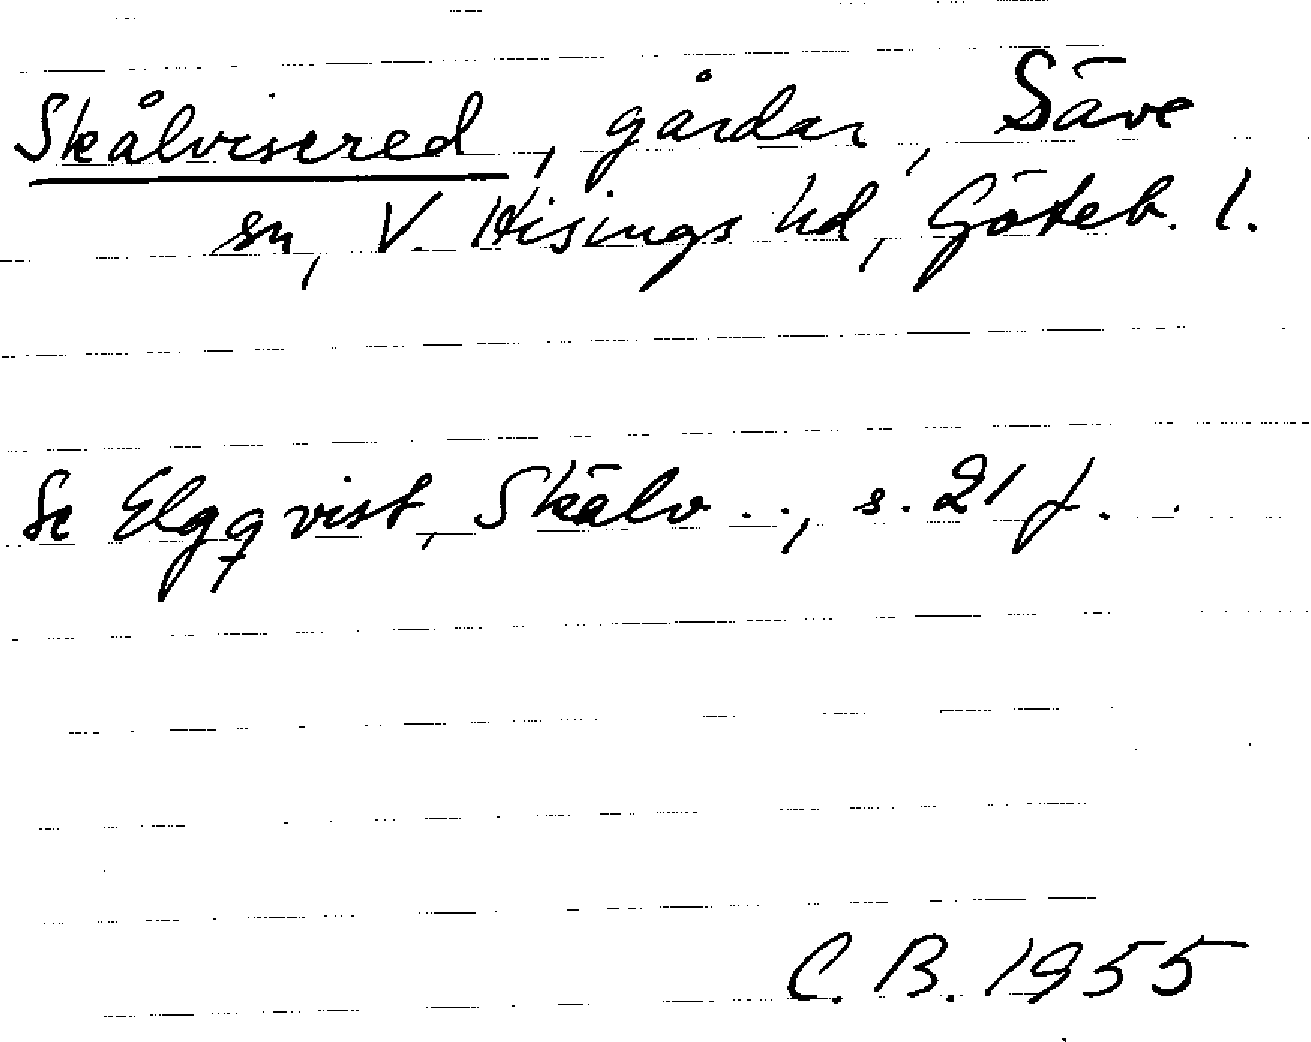 Skålvisered, gårdar, Säve
sn, V. Hisings hd, Göteb. l.
Se Elgqvist, Skälv.., s. 21 f.
C. B. 1955